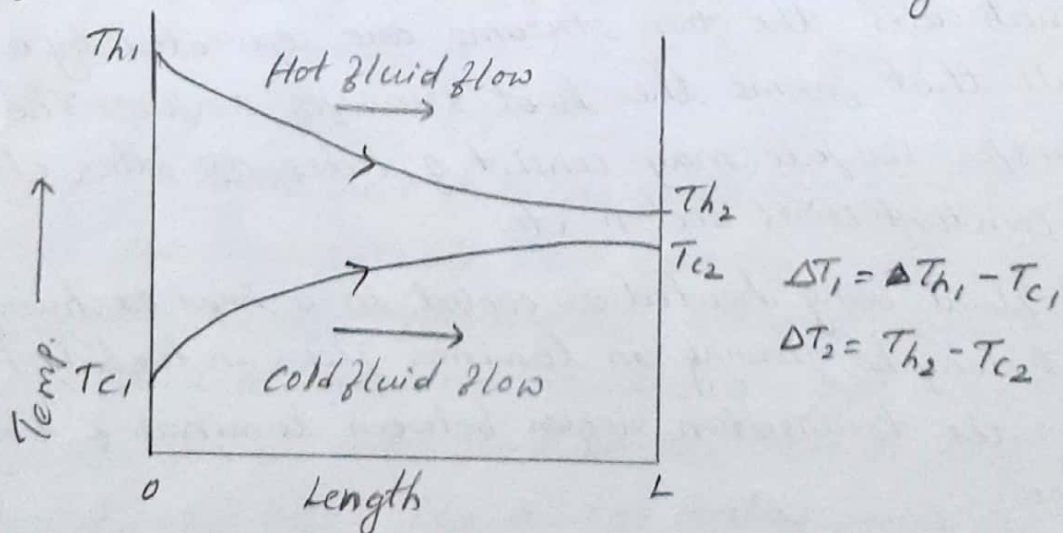 Th1
Hot fluid flow
Th2
Tc2
ΔT1 = ΔTh1 - Tc1
ΔT2 = Th2 - Tc2
Temp.
Tc1
cold fluid flow
0
Length
L